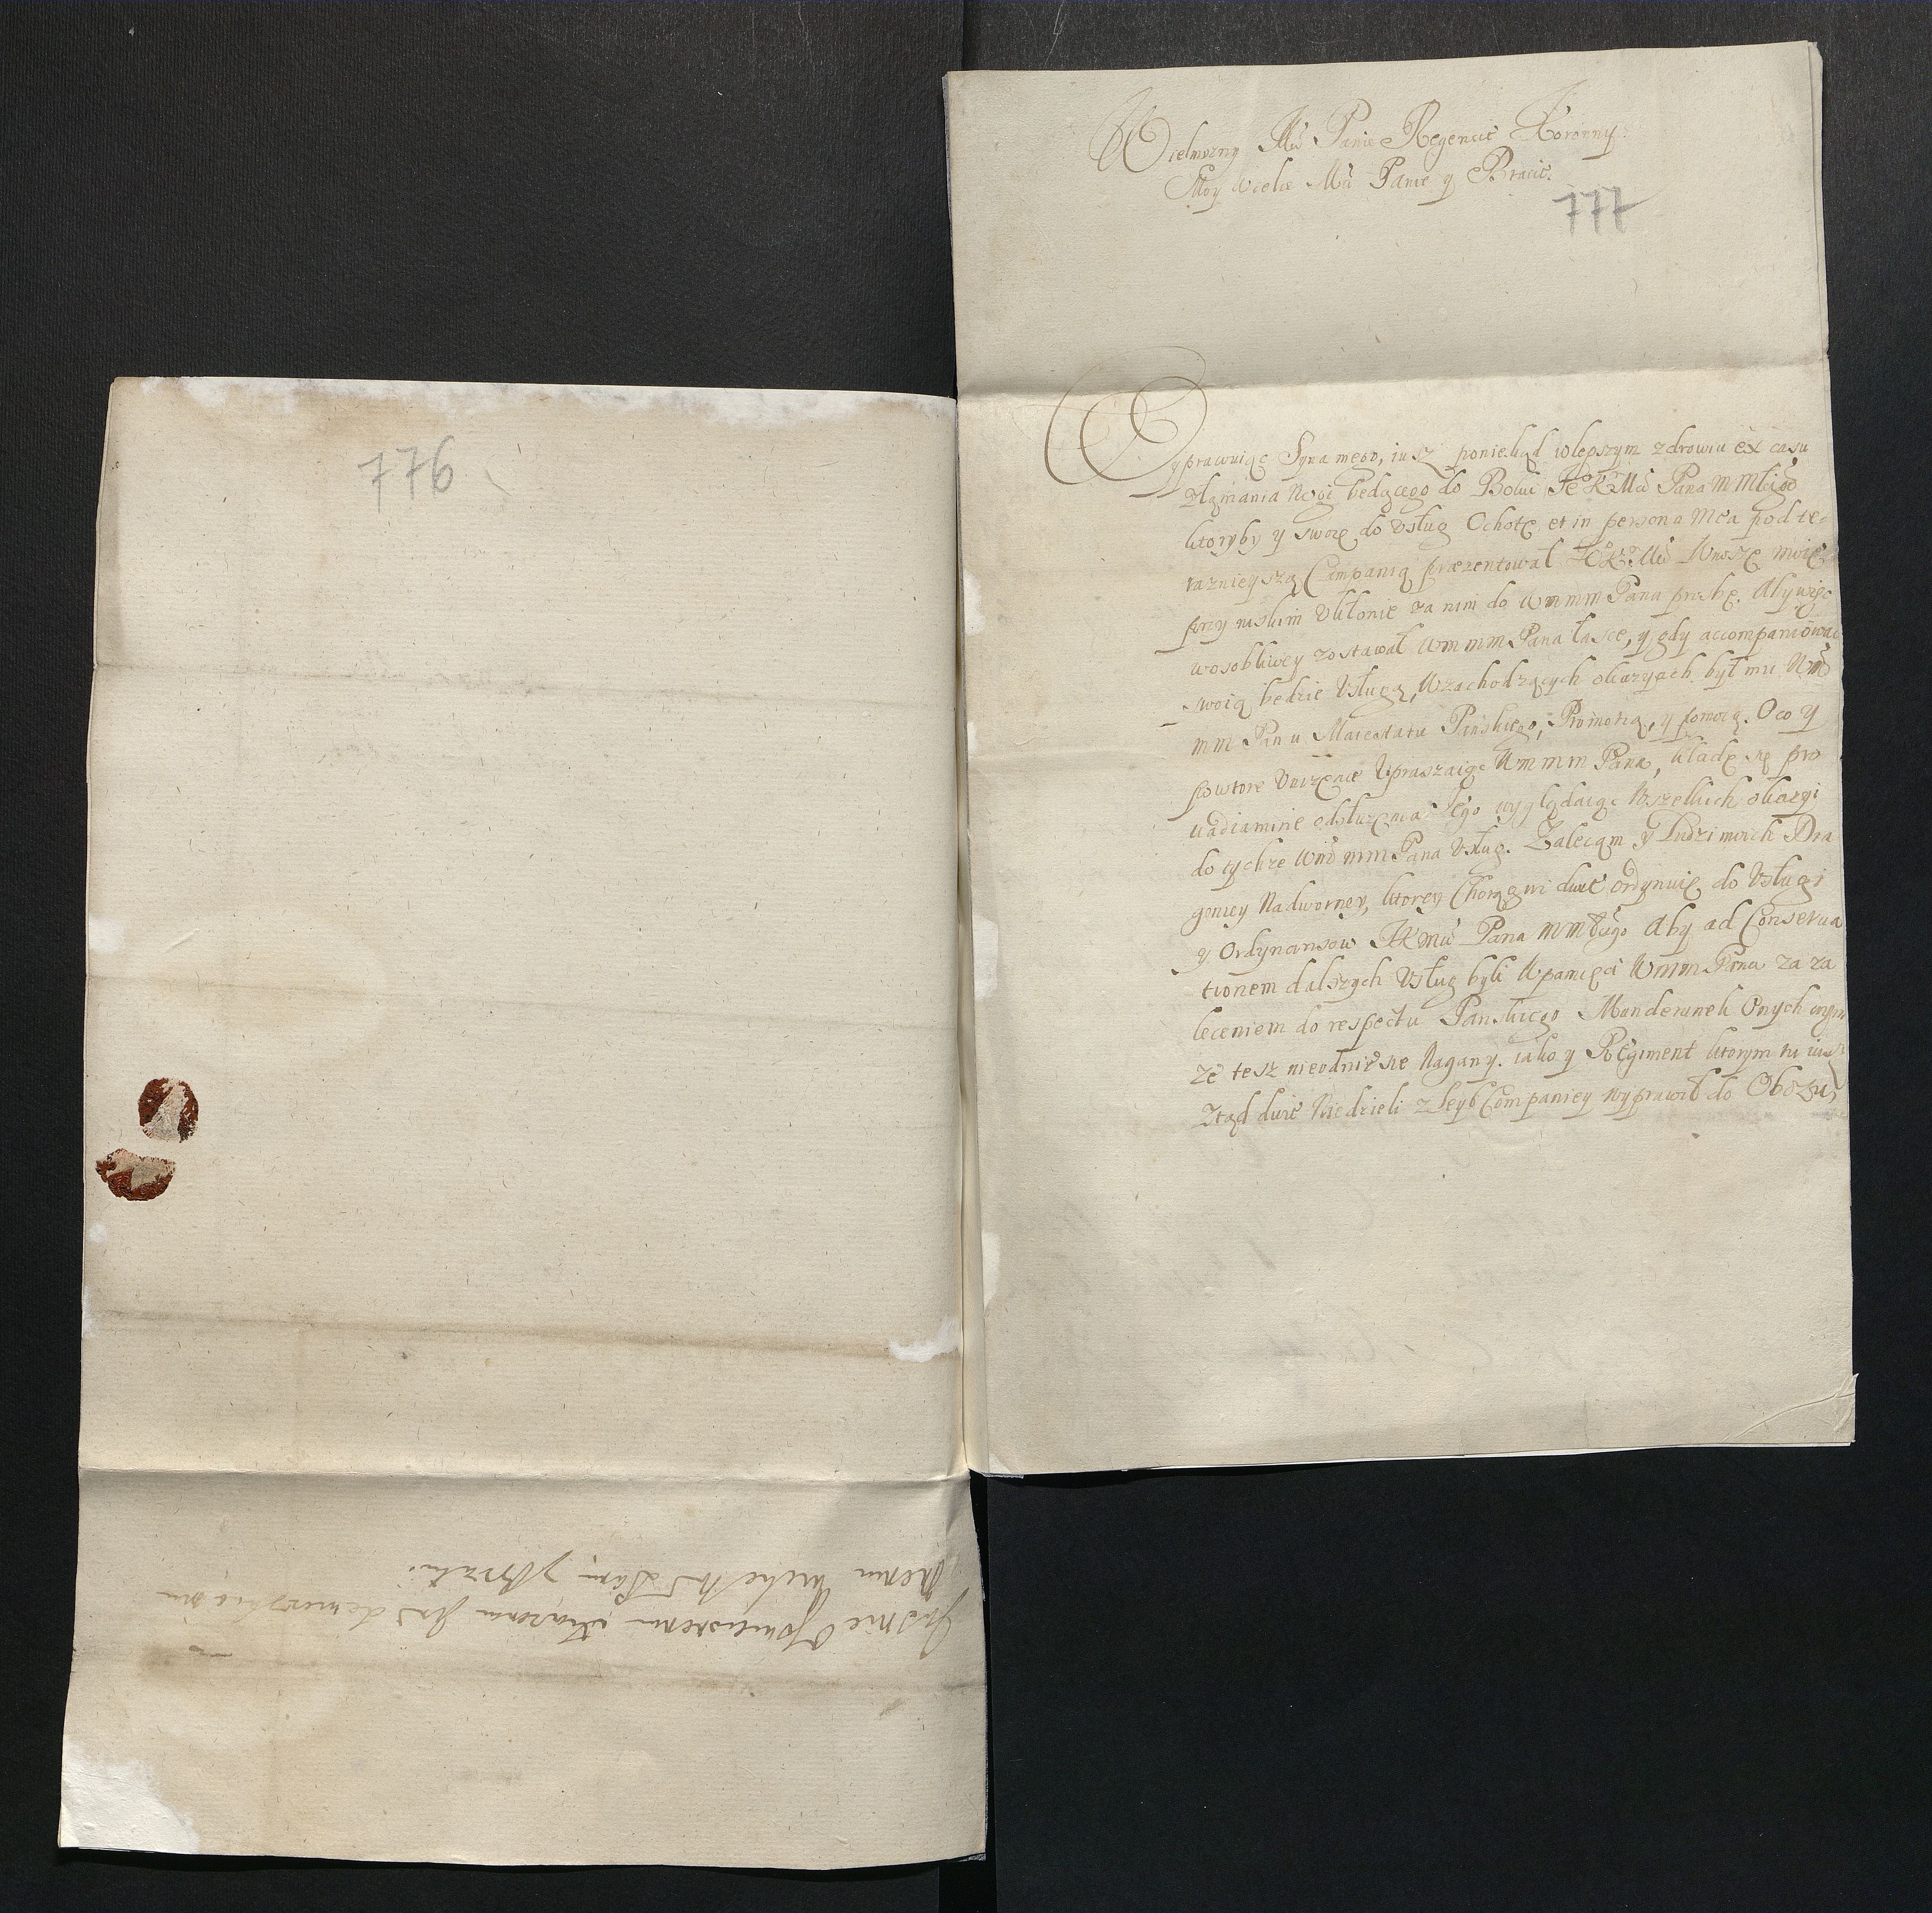 776
Jasnie
memu Wielce Mci Panu y Bratu.
Wielmozny Mci Panie Regencie Koronny
Moy Wielce Mci Panie y Bracie.
777
Wyprawuiąc Syna mego, iusz poniekąd wlepszym zdrowiu ex casu
złąmania Nogi będącego do Boku Je° K Mci Pana M Młci°
ktoryby y swoię do Usług Ochotę et in persona mea pod te-
raznieyszą Campanią præzentował Wnoszę moię
przy niskim Ukłonie za nim do Wmmm Pana prosbę. Aby więc
wosobliwey zostawał Wmmm Pana łasce, y gdy accompaniować
swoią będzie Usługą, Wzachodzących okazyach był mu Wm
mm Pan u Maiestatu Pańskiego, Promotią, y pomocą. Oco y
powtore Unizenie Upraszaiąc Wmmm Pana, kładę się pro
vadiamine odsłuzenia tego wyglądaiąc Wszelkich okazyi
do tychze Wm mm Pana Usług. Zalecąm y Ludzi moich Dra
goniey Nadworney, ktorey Chorągwi dwie ordynuię do Usługi
y Ordynansow JKMci Pana mm Aby ad Conserva
tionem dalszych Usług byli Wpamięci Wmm Pana za za
leceniem do respectu Panskiego Munderunek Onych
ze tesz nieodniesie Nagany. iako y Regiment ktorym tu iusz
Ztąd dwie Niedzieli z Leyb Companiey Wyprawił do Obozu,